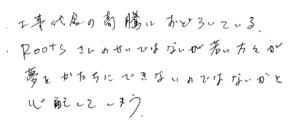 ・工事代金の高騰におどろいている。
・Rootsさんのせいではないが若い方々が
夢をかたちにできないのではないかと
心配してしまう。